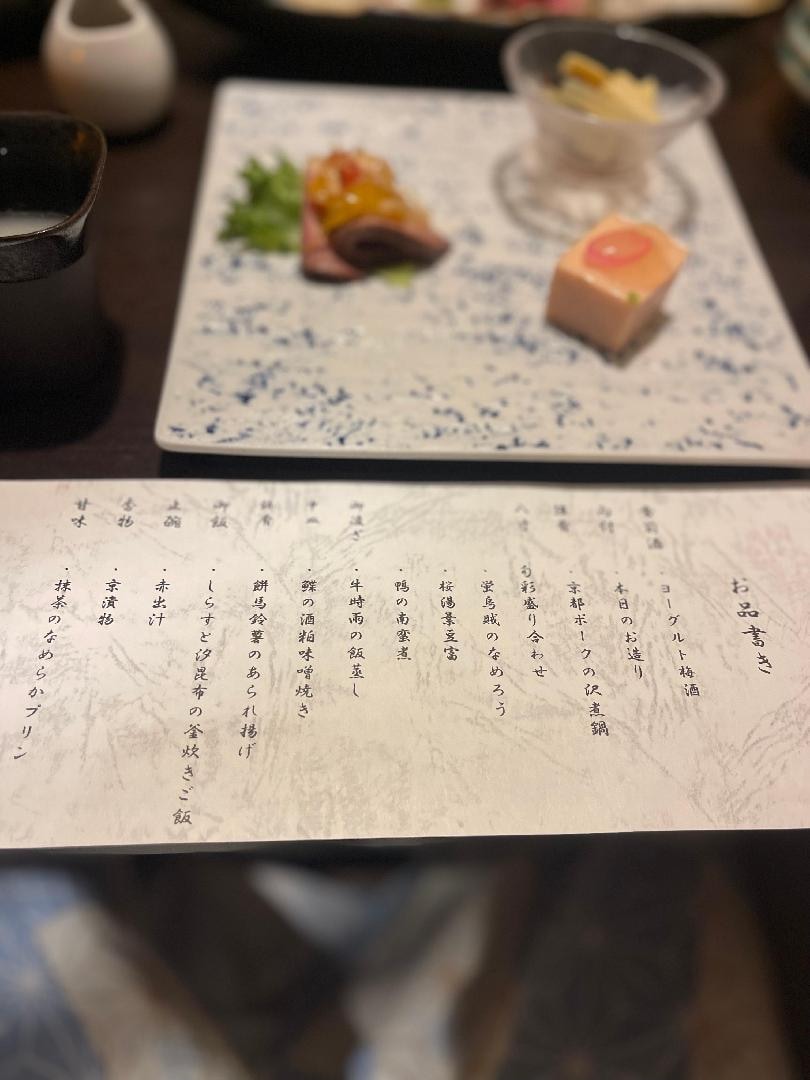 お品書き
食前酒 ・ヨーグルト梅酒
向付 ・本日のお造り
・京都ポークの沢煮鍋
八寸 ・旬彩盛り合わせ
・蛍烏賊のなめろう
・桜湯葉豆富
・鴨の南蛮煮
御凌ぎ ・牛時雨の飯蒸し
中皿 ・鰈の酒粕味噌焼き
・餅馬鈴薯のあられ揚げ
御飯 ・しらすと汐昆布の釜炊きご飯
止椀 ・赤出汁
香物 ・京漬物
甘味 ・抹茶のなめらかプリン